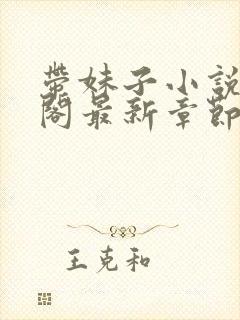 帶妹子小說
閣最新章節
王克和